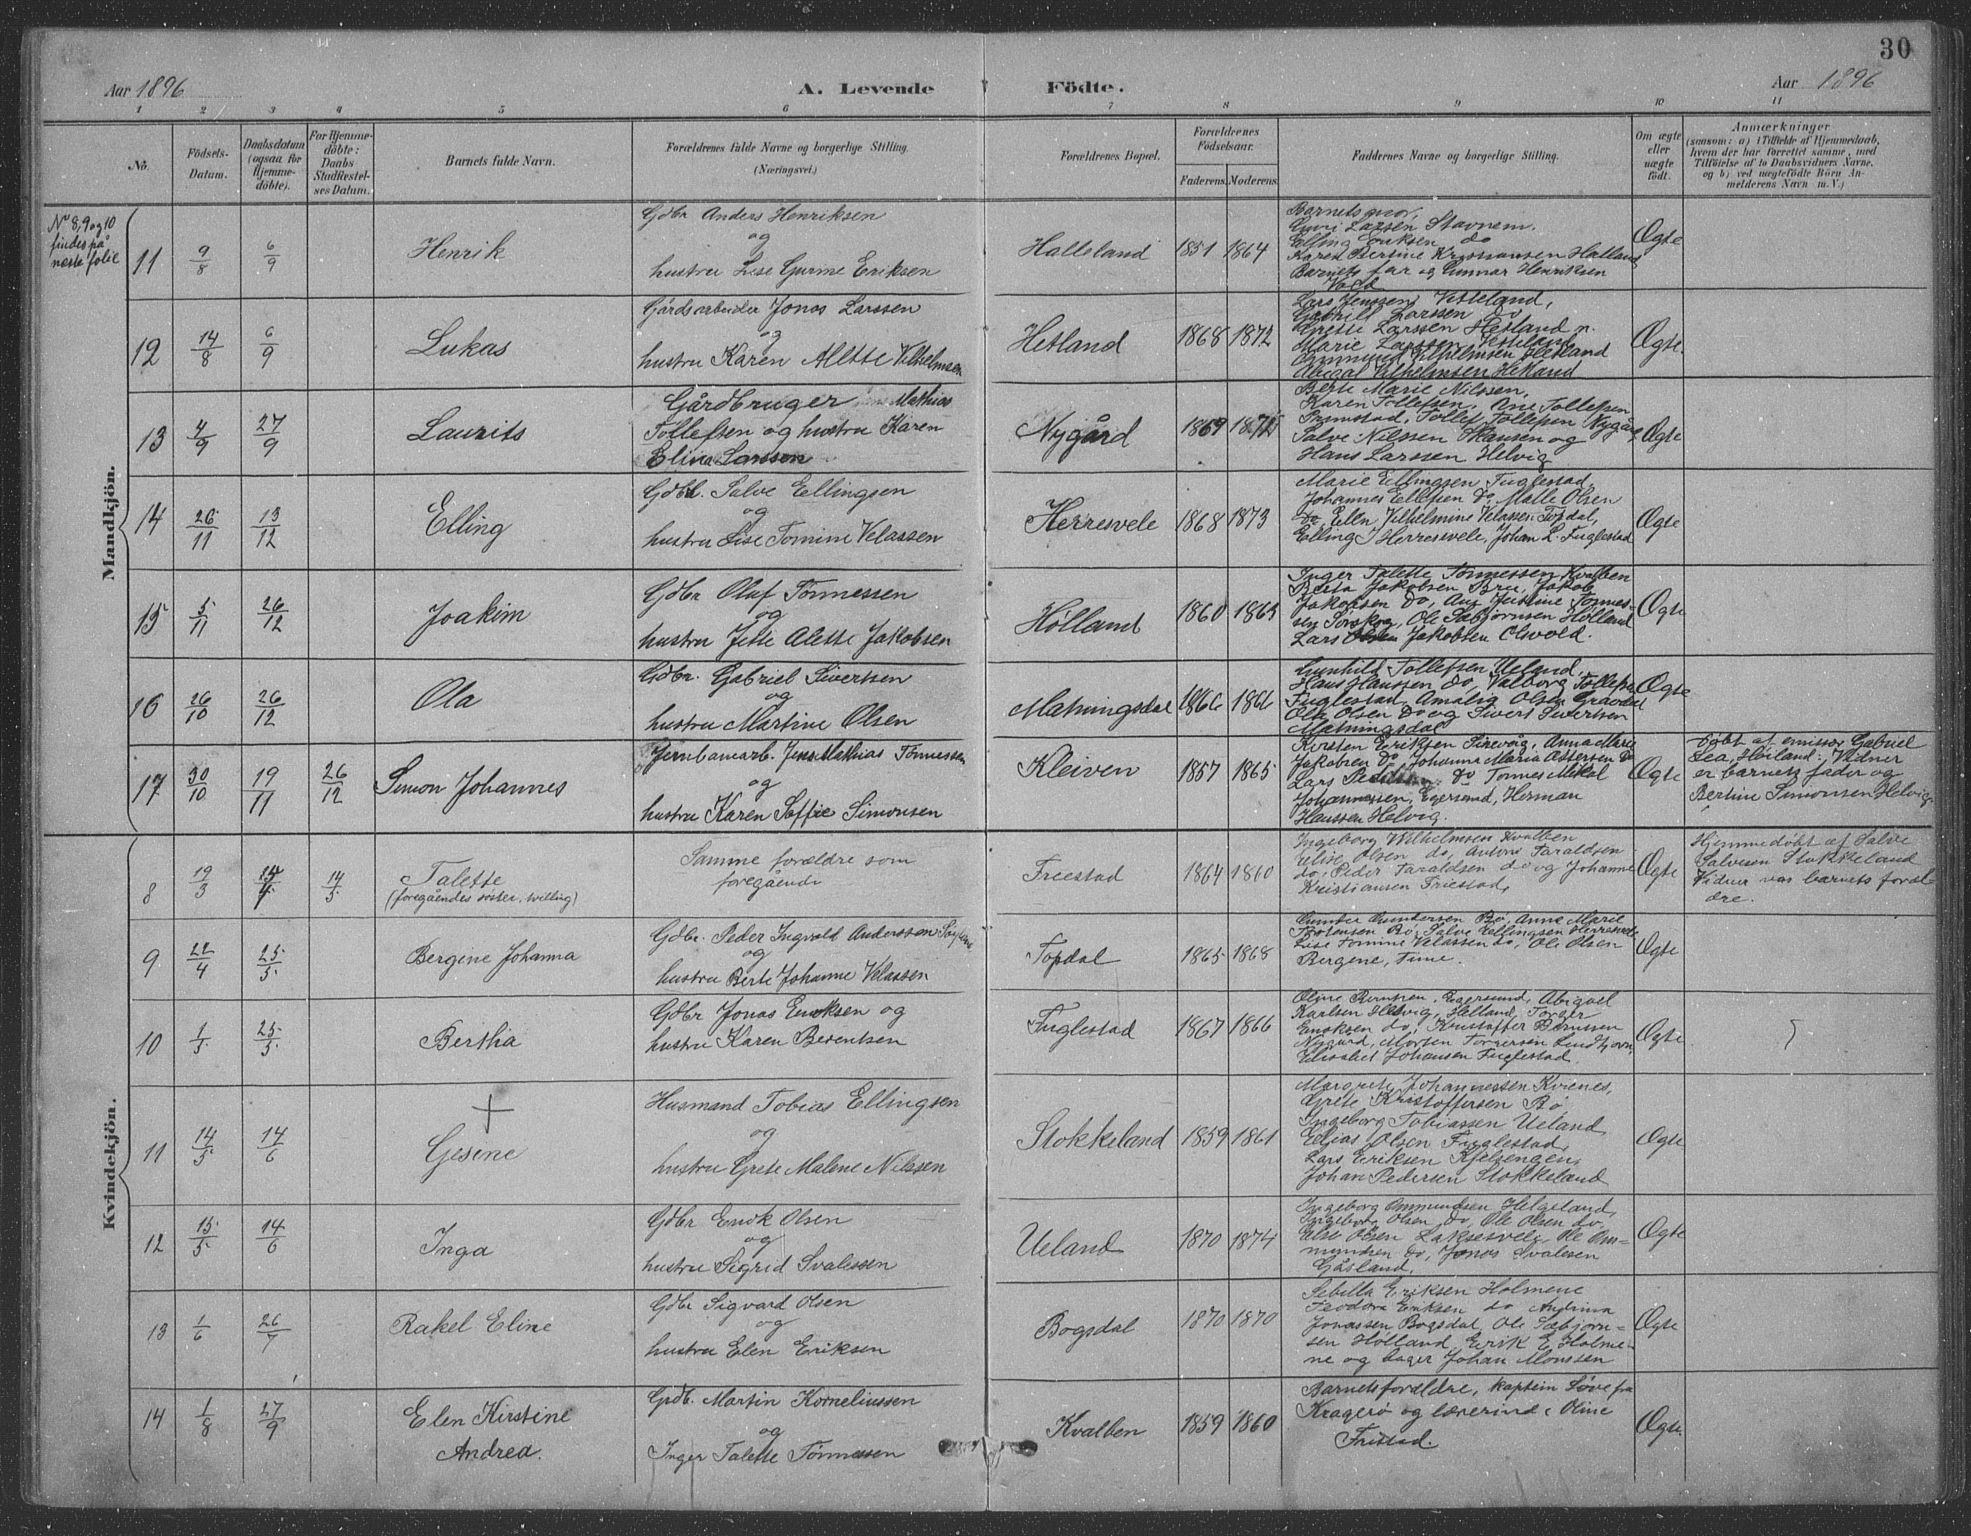 30
Aar 1896
A. Levende Födte.
Aar 1896
1 2 3 4 5 6 7 8 9 10 11
No.
Födsels-Datum.
Daabsdatum (ogsaa for Hjemmedöbte).
For Hjemmedöbte: Daabs Stadfæstelses Datum.
Barnets fulde Navn.
Forældrenes fulde Navne og borgerlige Stilling.
(Næringsvei.)
Forældrenes Bopæl.
Forældrenes Födselsaar.
Faderens. Moderens.
Faddernes Navne og borgerlige Stilling.
Om ægte eller uægte födt.
Anmærkninger
(saasom: a) i Tilfælde af Hjemmedaab, hvem der har forrettet samme, med Tilföielse af to Daabsvidners Navne, og b) ved uægtefödte Börn Anmelderens Navn m. V.)
Mandkjön.
No 8, 9 og 10
findes på
næste folie
11 9/8 6/9 Henrik
Gdbr Anders Henriksen
og
hustru Lise Gurine Eriksen
Halleland 1851 1864
Barnets mor,
Guri Larsen Stavnem.
Elling Eriksen do
Karen Bertine Kristiansen Halland
Barnets far og Gunnar Henriksen
Vold
Ægte
12 14/8 6/9 Lukas
Gårdsarbeider Jonas Larssen
og
hustru Karen Alette Vilhelmsen
Hetland 1868 1872
Lars Jenssen Vetteland,
Gabriel Larssen do
Grette Larssen Hetland
Marie Larssen Vetteland
Gunmund Vilhelmsen Hetland
Abigal Vilhelmsen Hetland
Ægte.
13 4/9 27/9 Laurits
Gårdbruger Mathias
Tollefsen og hustru Karen
Eline Larssen
Nygård 1869 1872
Berte Marie Nilssen,
Karen Tollefsen, Ane Tollefsen
Tollef Tollefsen Nygård
Salve Nilssen Skansen og
Hans Larssen Helvig
Ægte
14 26/11 13/12 Elling
Gdbr. Salve Ellingsen
og
hustru Lise Tomine Velassen
Herresvele 1868 1873
Marie Ellingsen Fuglestad,
Johannes Ellefsen do, Malle Olsen
do, Elen Vilhelmine Velassen Topdal,
Elling J Herresvele, Johan L. Fuglestad
Ægte
15 5/11 26/12 Joakim
Gdbr Oluf Tønnessen
og
hustru Jette Alette Jakobsen
Hølland 1860 1865
Inger Talette Tønnessen Kvalben
Berta Jakobsen Bru, Jakob
Jakobsen do, Ane Justine Tønnes-
sen Torskog, Ole Sæbjørnsen Hølland
Lars Jakobsen Olsvold.
Ægte
16 26/10 26/12 Ola
Gdbr. Gabriel Sivertsen
og
hustru Martine Olsen
Matningsdal 1866 1866
Gunhild Tollefsen Ueland,
Hans Hanssen do, Valborg Tollefsen
Fuglestad, Amalia Olsen Gravdal
Ole Olsen do og Sivert Sivertsen
Matningsdal
Ægte
17 30/10 19/11 26/12 Simon Johannes
Jernbanearb. Jens Mathias Tønnessen
og
hustru Karen Soffie Simonsen
Kleiven 1857 1865
Kirsten Eriksen Sirevåg, Anna Marie
Jakobsen do, Johanne Maria Assersen do
Lars do Tønnes Mikal
Johannessen, Egersund, Herman
Hanssen Helvig.
Ægte
døbt af emissær Gabriel
Lea, Høiland. Vidner
er barnets fader og
Bertine Simonsen Helvig.
Kvindekjön.
8 19/3 14/5 Talette
(foregåendes søster, tvilling)
Samme forældre som
foregående
Friestad 1864 1860
Ingeborg Vilhelmsen Kvalben
Elise Olsen do, Antoni Taraldsen
do, Peder Taraldsen do og Johanne
Kristiansen Friestad,
Ægte
Hjemmedøbt af Salve
Salvesen Stokkeland
Vidner var barnets foræl-
dre.
9 22/4 25/5 Bergine Johanna
Gdbr. Peder Ingvald Anderssen
og
hustru Berte Johanne Velassen
Topdal 1865 1868
Gunder Gundersen Bø, Anne Marie
Torkelsen Bø, Salve Ellingsen Herresvele
Lise Tomine Velassen do, Ole Olsen
Bergene, Time.
Ægte
10 1/5 25/5 Bertha
Gdbr Jonas Enoksen og
hustru Karen Berentsen
Fuglestad 1867 1866
Oline Berntsen, Egersund, Abigael
Karlsen Helvig, Helland, Torger
Enoksen do, Kristoffer Berntsen
Nygård, Morten Torgersen
Elisabet Johansen Fuglestad
Ægte
11 14/5 14/6 Gesine
Husmand Tobias Ellingsen
og
hustru Grete Malene Nilssen
Stokkeland 1859 1861
Margrete Johannessen Kvienes,
Grete Kristoffersen Bø
Ingeborg Tobiassen Ueland
Elias Olsen Fuglestad,
Lars Eriksen Kjelsengen,
Johan Pedersen Stokkeland
Ægte
12 15/5 14/6 Inga
Gdbr Enok Olsen
og
hustru Sigrid Svalessen
Ueland 1870 1874
Ingeborg Ommundsen Helgeland,
Ingeborg Olsen do, Ole Olsen do,
Else Olsen Laksesvele, Ole Om-
mundsen do, Jonas Svalesen
Gåsland,
Ægte
13 1/6 26/7 Rakel Eline
Gdbr Sigvard Olsen
og
hustru Elen Eriksen
Bogsdal 1870 1870
Sebilla Eriksen Holmene
Teodora Eriksen do Andrina
Jonassen Bogsdal, Ole Sæbjørn-
sen Hølland, Erik E. Holme-
ne og bager Johan Monssen
Ægte
14 1/8 27/9 Elen Kirstine
Andrea.
Gdb. Martin Korneliussen
og
Inger Talette Tønnessen
Kvalben 1859 1860
Barnets forældre, kaptein Løve fra
Kragerø og lærerinde Oline
Fristad.
Ægte.